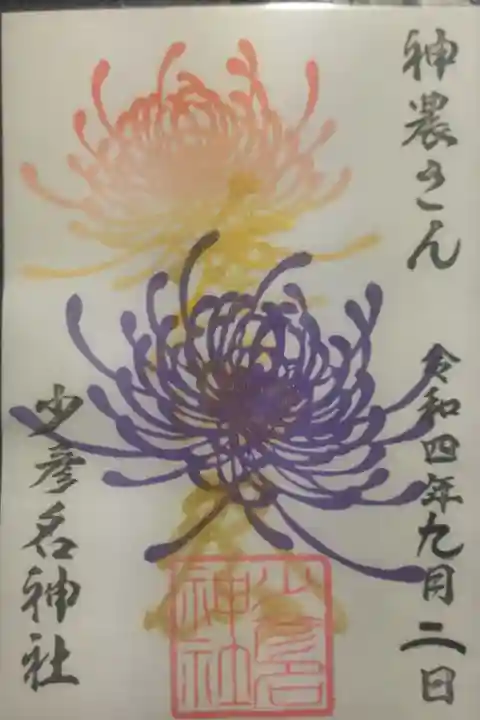 神農さん
令和四年九月二日
少彦名神社
少彦名
神社